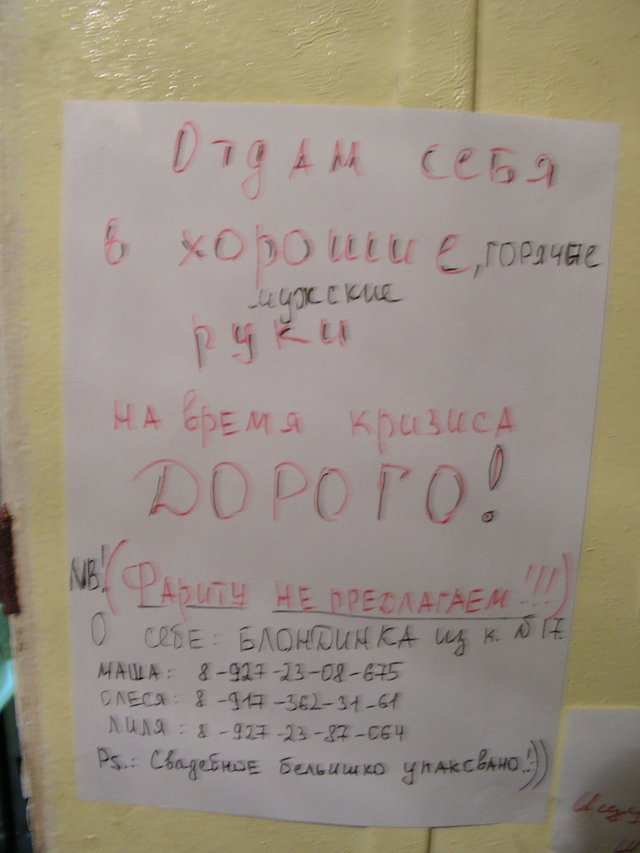 Отдам себя
в хорошие, горячие
мужские
руки
на время кризиса
ДОРОГО!
NB! (Фариту не предлагаем!!!)
О себе: БЛОНДИНКА из к. № 17.
МАША: 8-927-23-08-675
ОЛЕСЯ: 8-917-362-31-61
ЛИЛЯ: 8-927-23-87-064
Ps.: Свадебное бельишко упаковано!))